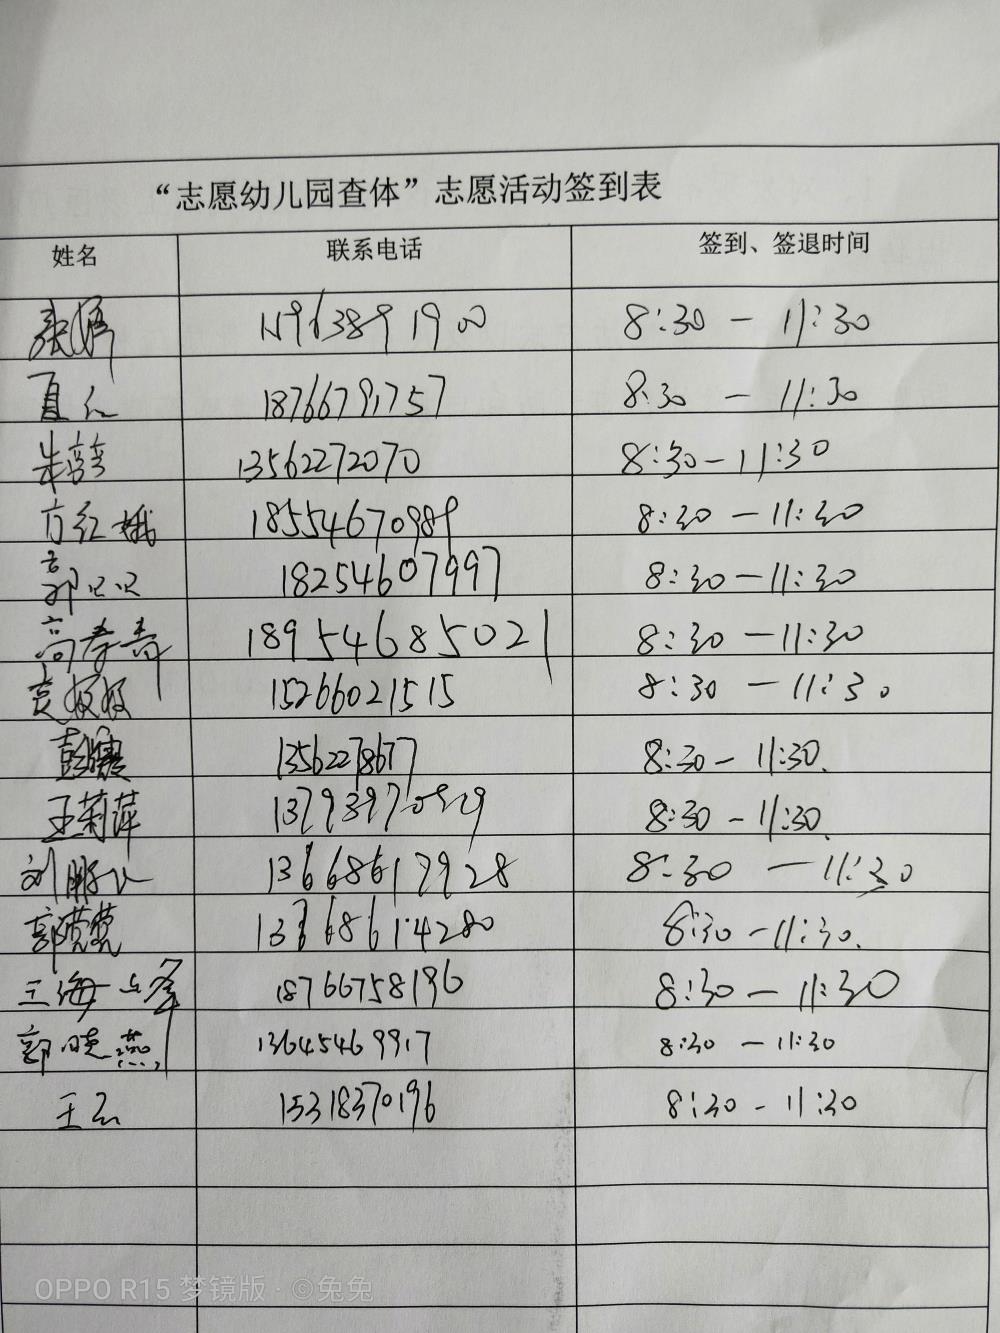 “志愿幼儿园查体”志愿活动签到表
姓名 联系电话 签到、签退时间
张娉 8:30 — 11:30
夏红 18766791757 8:30 — 11:30
朱 13562272070 8:30-11:30
方红娥 18554670989 8:30 — 11:30
郭 18254607997 8:30 — 11:30
高春青 18954685021 8:30 — 11:30
15266021515 8:30 — 11:30
彭 13562278677 8:30 - 11:30.
王菊萍 8:30 - 11:30.
刘鹏 8:30 — 11:30
郭莹莹 13368614280 8:30 - 11:30.
王海峰 18766758196 8:30 — 11:30
郭晓燕 13645469917 8:30 — 11:30
王云 15318370196 8:30 - 11:30
OPPO R15 梦镜版 · ©兔兔